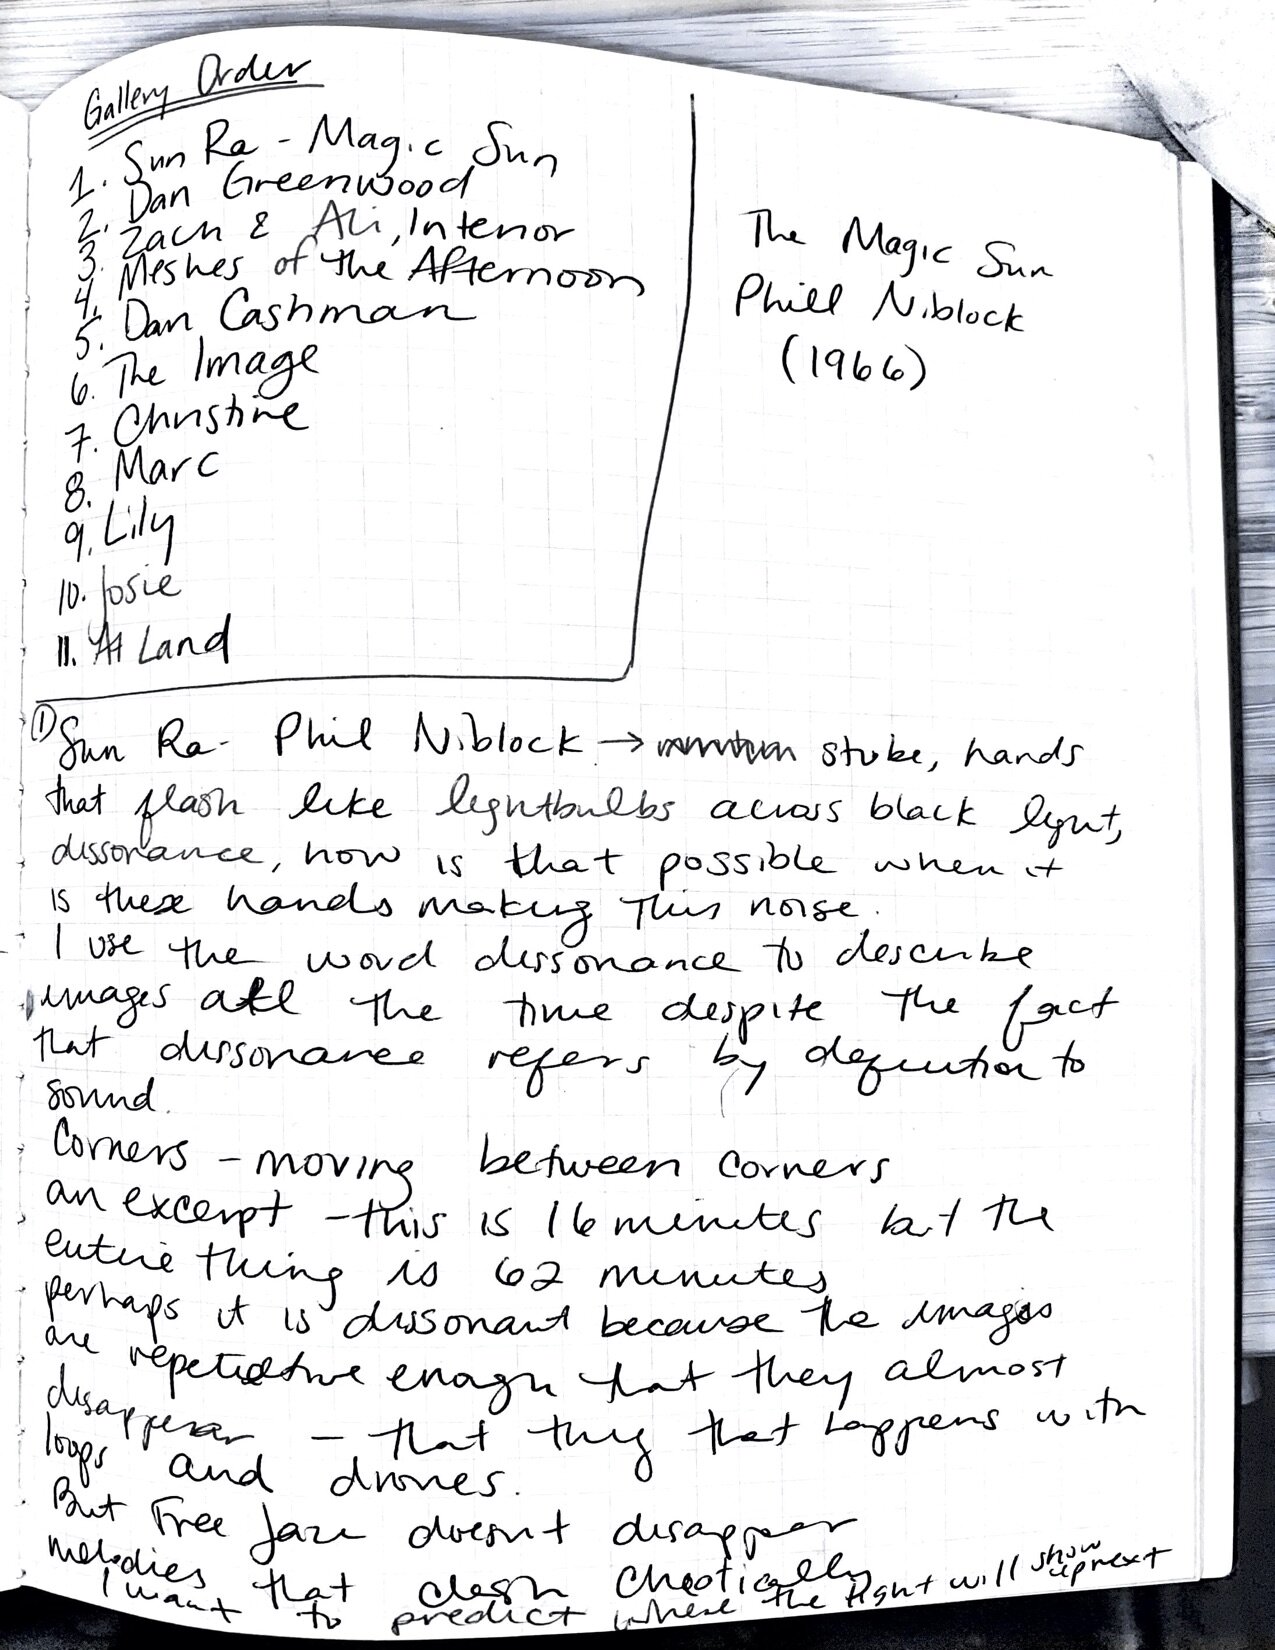 Gallery Order
1. Sun Ra - Magic Sun
2. Dan Greenwood
3. Zach & Ali, Interior
4. Meshes of the Afternoon
5. Dan Cashman
6. The Image
7. Christine
8. Marc
9. Lily
10. Josie
11. At Land
The Magic Sun
Phill Niblock
(1966)
① Sun Ra - Phil Niblock → hands
that flash like lightbulbs across black light,
dissonance, how is that possible when it
is these hands making this noise.
I use the word dissonance to describe
images all the time despite the fact
that dissonance refers by definition to
sound.
Corners - moving between corners
an excerpt - this is 16 minutes but the
entire thing is 62 minutes
perhaps it is dissonant because the images
are repetitive enough that they almost
disappear - that they that happens with
loops and drones.
But Free Jazz doesn't disappear
melodies that clash chaotically
I want to predict where the light will show up next